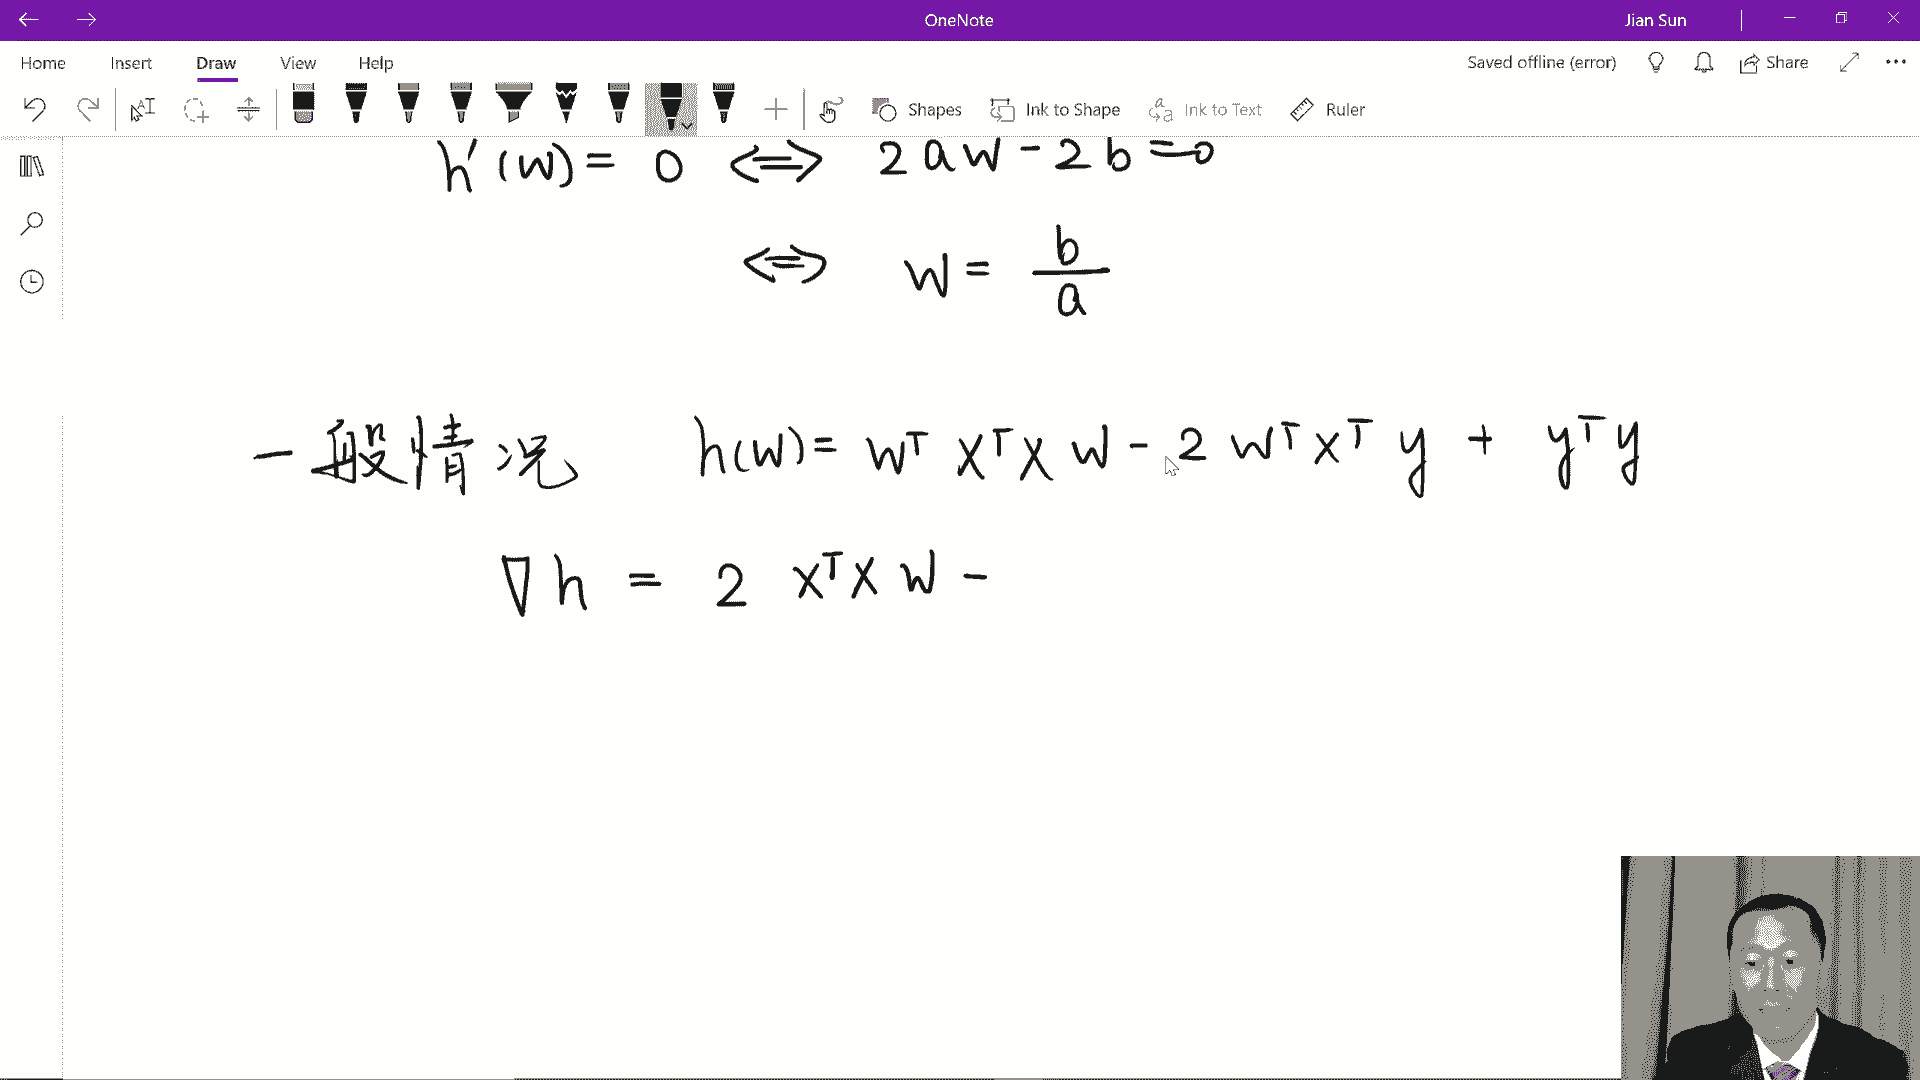 OneNote
Jian Sun
Home Insert Draw View Help
Saved offline (error)
Share
Shapes
Ink to Shape
Ink to Text
Ruler
h'(w) = 0 ⟺ 2aw - 2b = 0
⟺ w = b/a
一般情况 h(w) = wᵀ Xᵀ X w - 2 wᵀ Xᵀ y + yᵀ y
∇h = 2 Xᵀ X w -